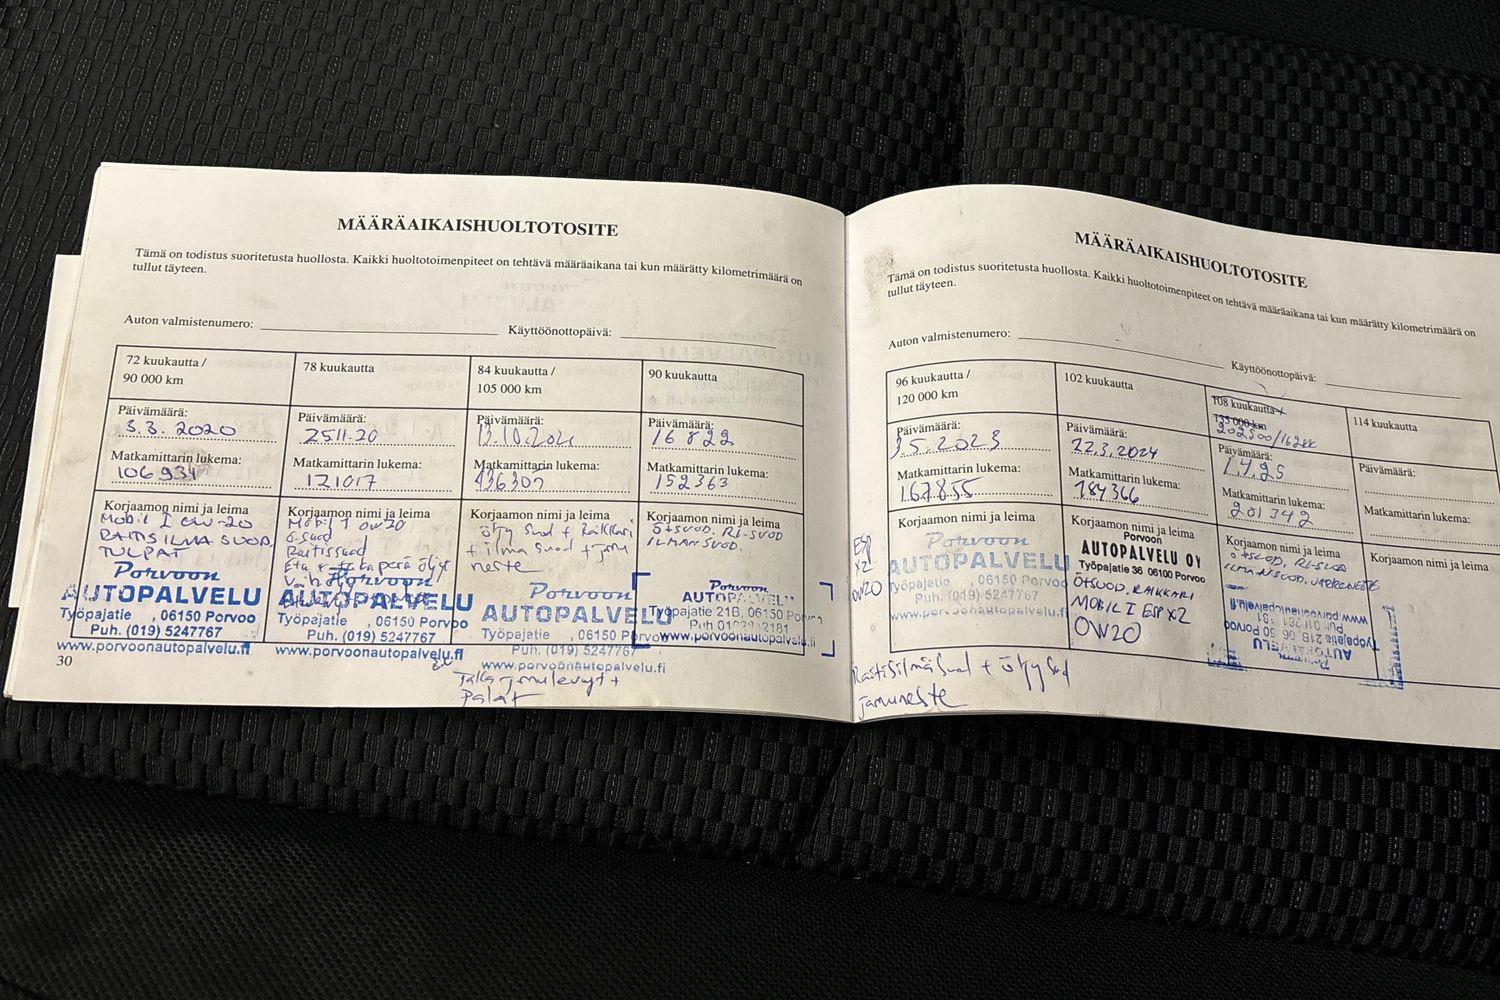 MÄÄRÄAIKAISHUOLTOTOSITE
Tämä on todistus suoritetusta huollosta. Kaikki huoltotoimenpiteet on tehtävä määräaikana tai kun määrätty kilometrimäärä on
tullut täyteen.
Auton valmistenumero: Käyttöönottopäivä:
72 kuukautta /
90 000 km
Päivämäärä:
3.3. 2020
Matkamittarin lukema:
106 931
Korjaamon nimi ja leima
Mobil 1 0W-20
RAITISILMA SUOD.
TULPAT
Porvoon
AUTOPALVELU
Työpajatie , 06150 Porvoo
Puh. (019) 5247767
www.porvoonautopalvelu.fi
78 kuukautta
Päivämäärä:
25 11-20
Matkamittarin lukema:
121017
Korjaamon nimi ja leima
Mobil 1 0W20
ö.suod
Raitissuod
Etu + takaperä öljyt
Porvoon
AUTOPALVELU
Työpajatie , 06150 Porvoo
Puh. (019) 5247767
www.porvoonautopalvelu.fi
84 kuukautta /
105 000 km
Päivämäärä:
13.10.2021
Matkamittarin lukema:
136307
Korjaamon nimi ja leima
öljy suod + Raikkari
+ ilma suod + jarru
neste
Porvoon
AUTOPALVELU
Työpajatie , 06150 Porvoo
Puh. (019) 5247767
www.porvoonautopalvelu.fi
Taka jarrulevyt +
Palat
90 kuukautta
Päivämäärä:
16 8 22
Matkamittarin lukema:
152363
Korjaamon nimi ja leima
ÖTSUOD. RI-SUOD
ILMANSUOD.
Porvoon
AUTOPALVELU
Työpajatie 21B, 06150 Porvoo
www.porvoonautopalvelu.fi
30
MÄÄRÄAIKAISHUOLTOTOSITE
Tämä on todistus suoritetusta huollosta. Kaikki huoltotoimenpiteet on tehtävä määräaikana tai kun määrätty kilometrimäärä on
tullut täyteen.
Auton valmistenumero: Käyttöönottopäivä:
96 kuukautta /
120 000 km
Päivämäärä:
3.5.2023
Matkamittarin lukema:
167855
Korjaamon nimi ja leima
ESP
X2
0W20
Porvoon
AUTOPALVELU
Työpajatie , 06150 Porvoo
Puh. (019) 5247767
www.porvoonautopalvelu.fi
Raitisilmasuod + öljysuod
jarruneste
102 kuukautta
Päivämäärä:
22.3.2024
Matkamittarin lukema:
184366
Korjaamon nimi ja leima
Porvoon
AUTOPALVELU OY
Työpajatie 36 06100 Porvoo
ÖTSUOD, RAIKKARI
MOBIL 1 ESP X2
0W20
108 kuukautta /
135 000 km
202500/162kk
Päivämäärä:
1.4.25
Matkamittarin lukema:
201342
Korjaamon nimi ja leima
ÖTSUOD, RI-SUOD
ILMANSUOD, JARRUNESTE
Porvoon
AUTOPALVELU
Työpajatie 21B, 06150 Porvoo
www.porvoonautopalvelu.fi
114 kuukautta
Päivämäärä:
Matkamittarin lukema:
Korjaamon nimi ja leima